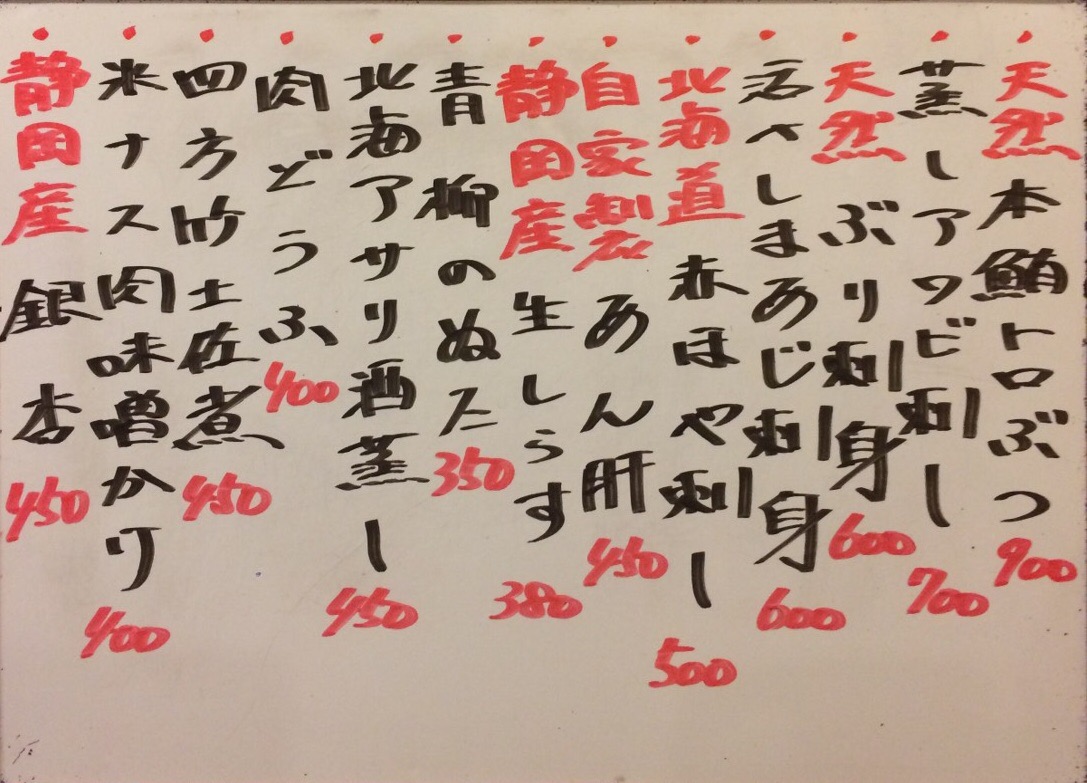 ・天然本鮪トロぶつ 900
・蒸しアワビ刺し 700
・天然ぶり刺身 600
・活〆しまあじ刺身 600
・北海道赤ほや刺し 500
・自家製あん肝 450
・静岡産生しらす 380
・青柳のぬた 350
・北海アサリ酒蒸し 450
・肉どうふ 400
・四方竹土佐煮 450
・米ナス肉味噌かけ 400
・静岡産銀杏 450